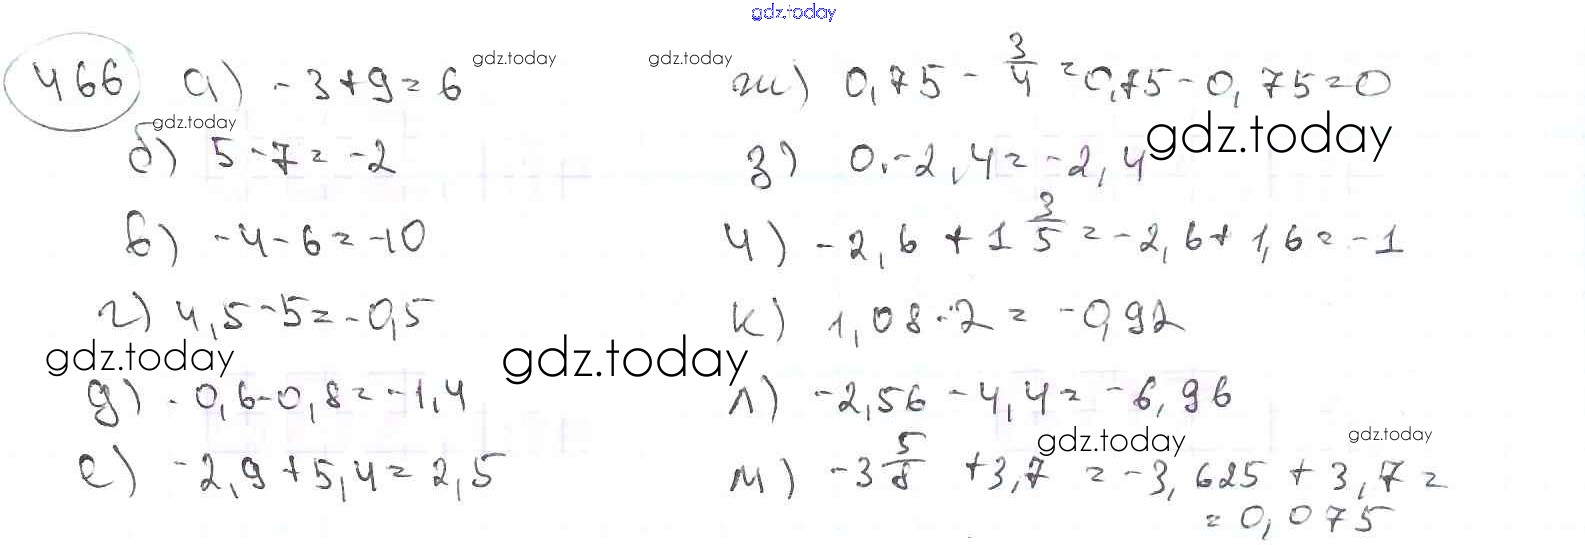 gdz.today
466 а) -3+9=6 gdz.today
gdz.today
б) 5-7=-2
в) -4-6=-10
г) 4,5-5=-0,5
gdz.today
д) -0,6-0,8=-1,4
е) -2,9+5,4=2,5
gdz.today ж) 0,75 - 3/4 =0,75-0,75=0
gdz.today
з) 0-2,4=-2,4
и) -2,6+1 3/5 =-2,6+1,6=-1
к) 1,08-2=-0,92
gdz.today
л) -2,56-4,4=-6,96
gdz.today gdz.today
м) -3 5/8 +3,7=-3,625+3,7=
=0,075